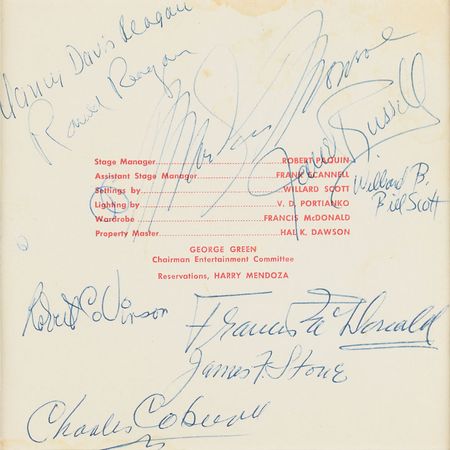 Nancy Davis Reagan
Ronald Reagan
Marilyn Monroe
Jane Russell
Stage Manager........ROBERT PAQUIN
Assistant Stage Manager........FRANK SCANNELL
Settings by........WILLARD SCOTT
Lighting by........V. D. PORTIANKO
Wardrobe........FRANCIS McDONALD
Property Master........HAL K. DAWSON
Willard B.
Bill Scott
GEORGE GREEN
Chairman Entertainment Committee
Reservations, HARRY MENDOZA
Francis McDonald
James F. Stone
Charles Coburn